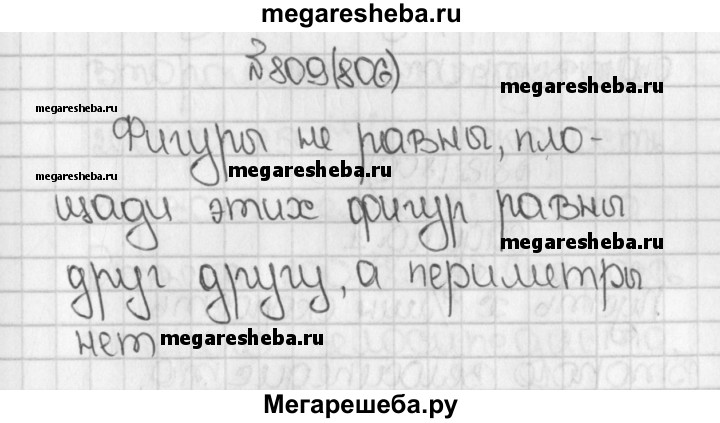 megaresheba.ru
№809(806)
megaresheba.ru
megaresheba.ru
Фигуры не равны, пло-
megaresheba.ru
megaresheba.ru
щади этих фигур равны
megaresheba.ru
друг другу, а периметры
нет
megaresheba.ru
megaresheba.ru
Мегарешеба.ру